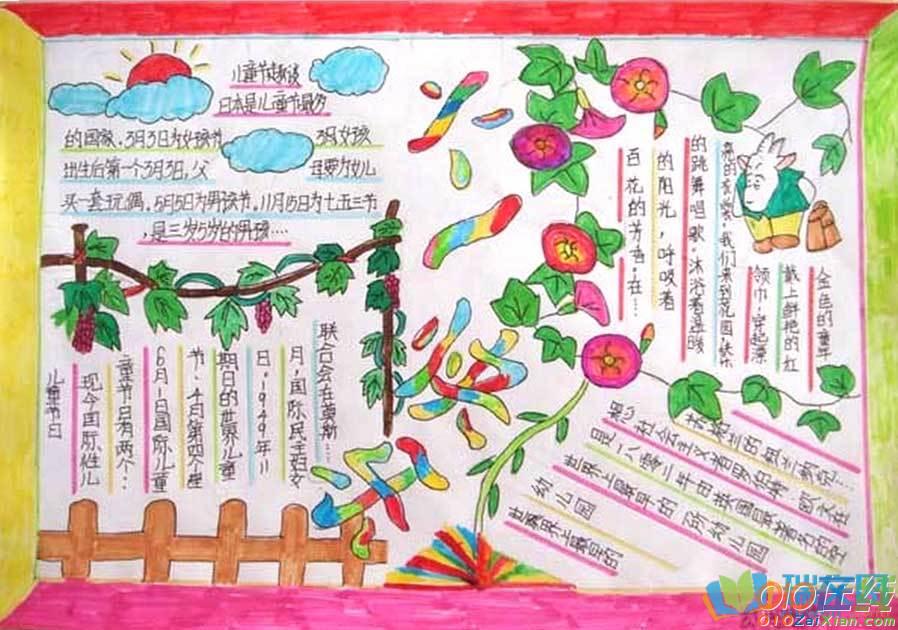 儿童节趣谈
日本是儿童节最多
的国家,3月3日为女孩节
3月女孩
出生后第一个3月3日,父
母要为女儿
买一套玩偶,5月5日为男孩节,11月15日为七五三节
,是三岁5岁的男孩····
金色的童年
戴上鲜艳的红
领巾,穿起漂
亮的衣裳,我们来到花园,快乐
的跳舞唱歌,沐浴着温暖
的阳光,呼吸着
百花的芳香,在···
儿童节日
现今国际性儿
童节日有两个···
6月1日国际儿童
节,4月第四个
期日的世界儿童
日,1949年11
月,国际民主妇女
联合会在莫斯···
世界上最早的
幼儿园
世界上最早的
幼儿园
是一八零二年由英国最著名的空
想社会主义者罗伯特 欧文在
苏格兰的
010ZaiXian.com